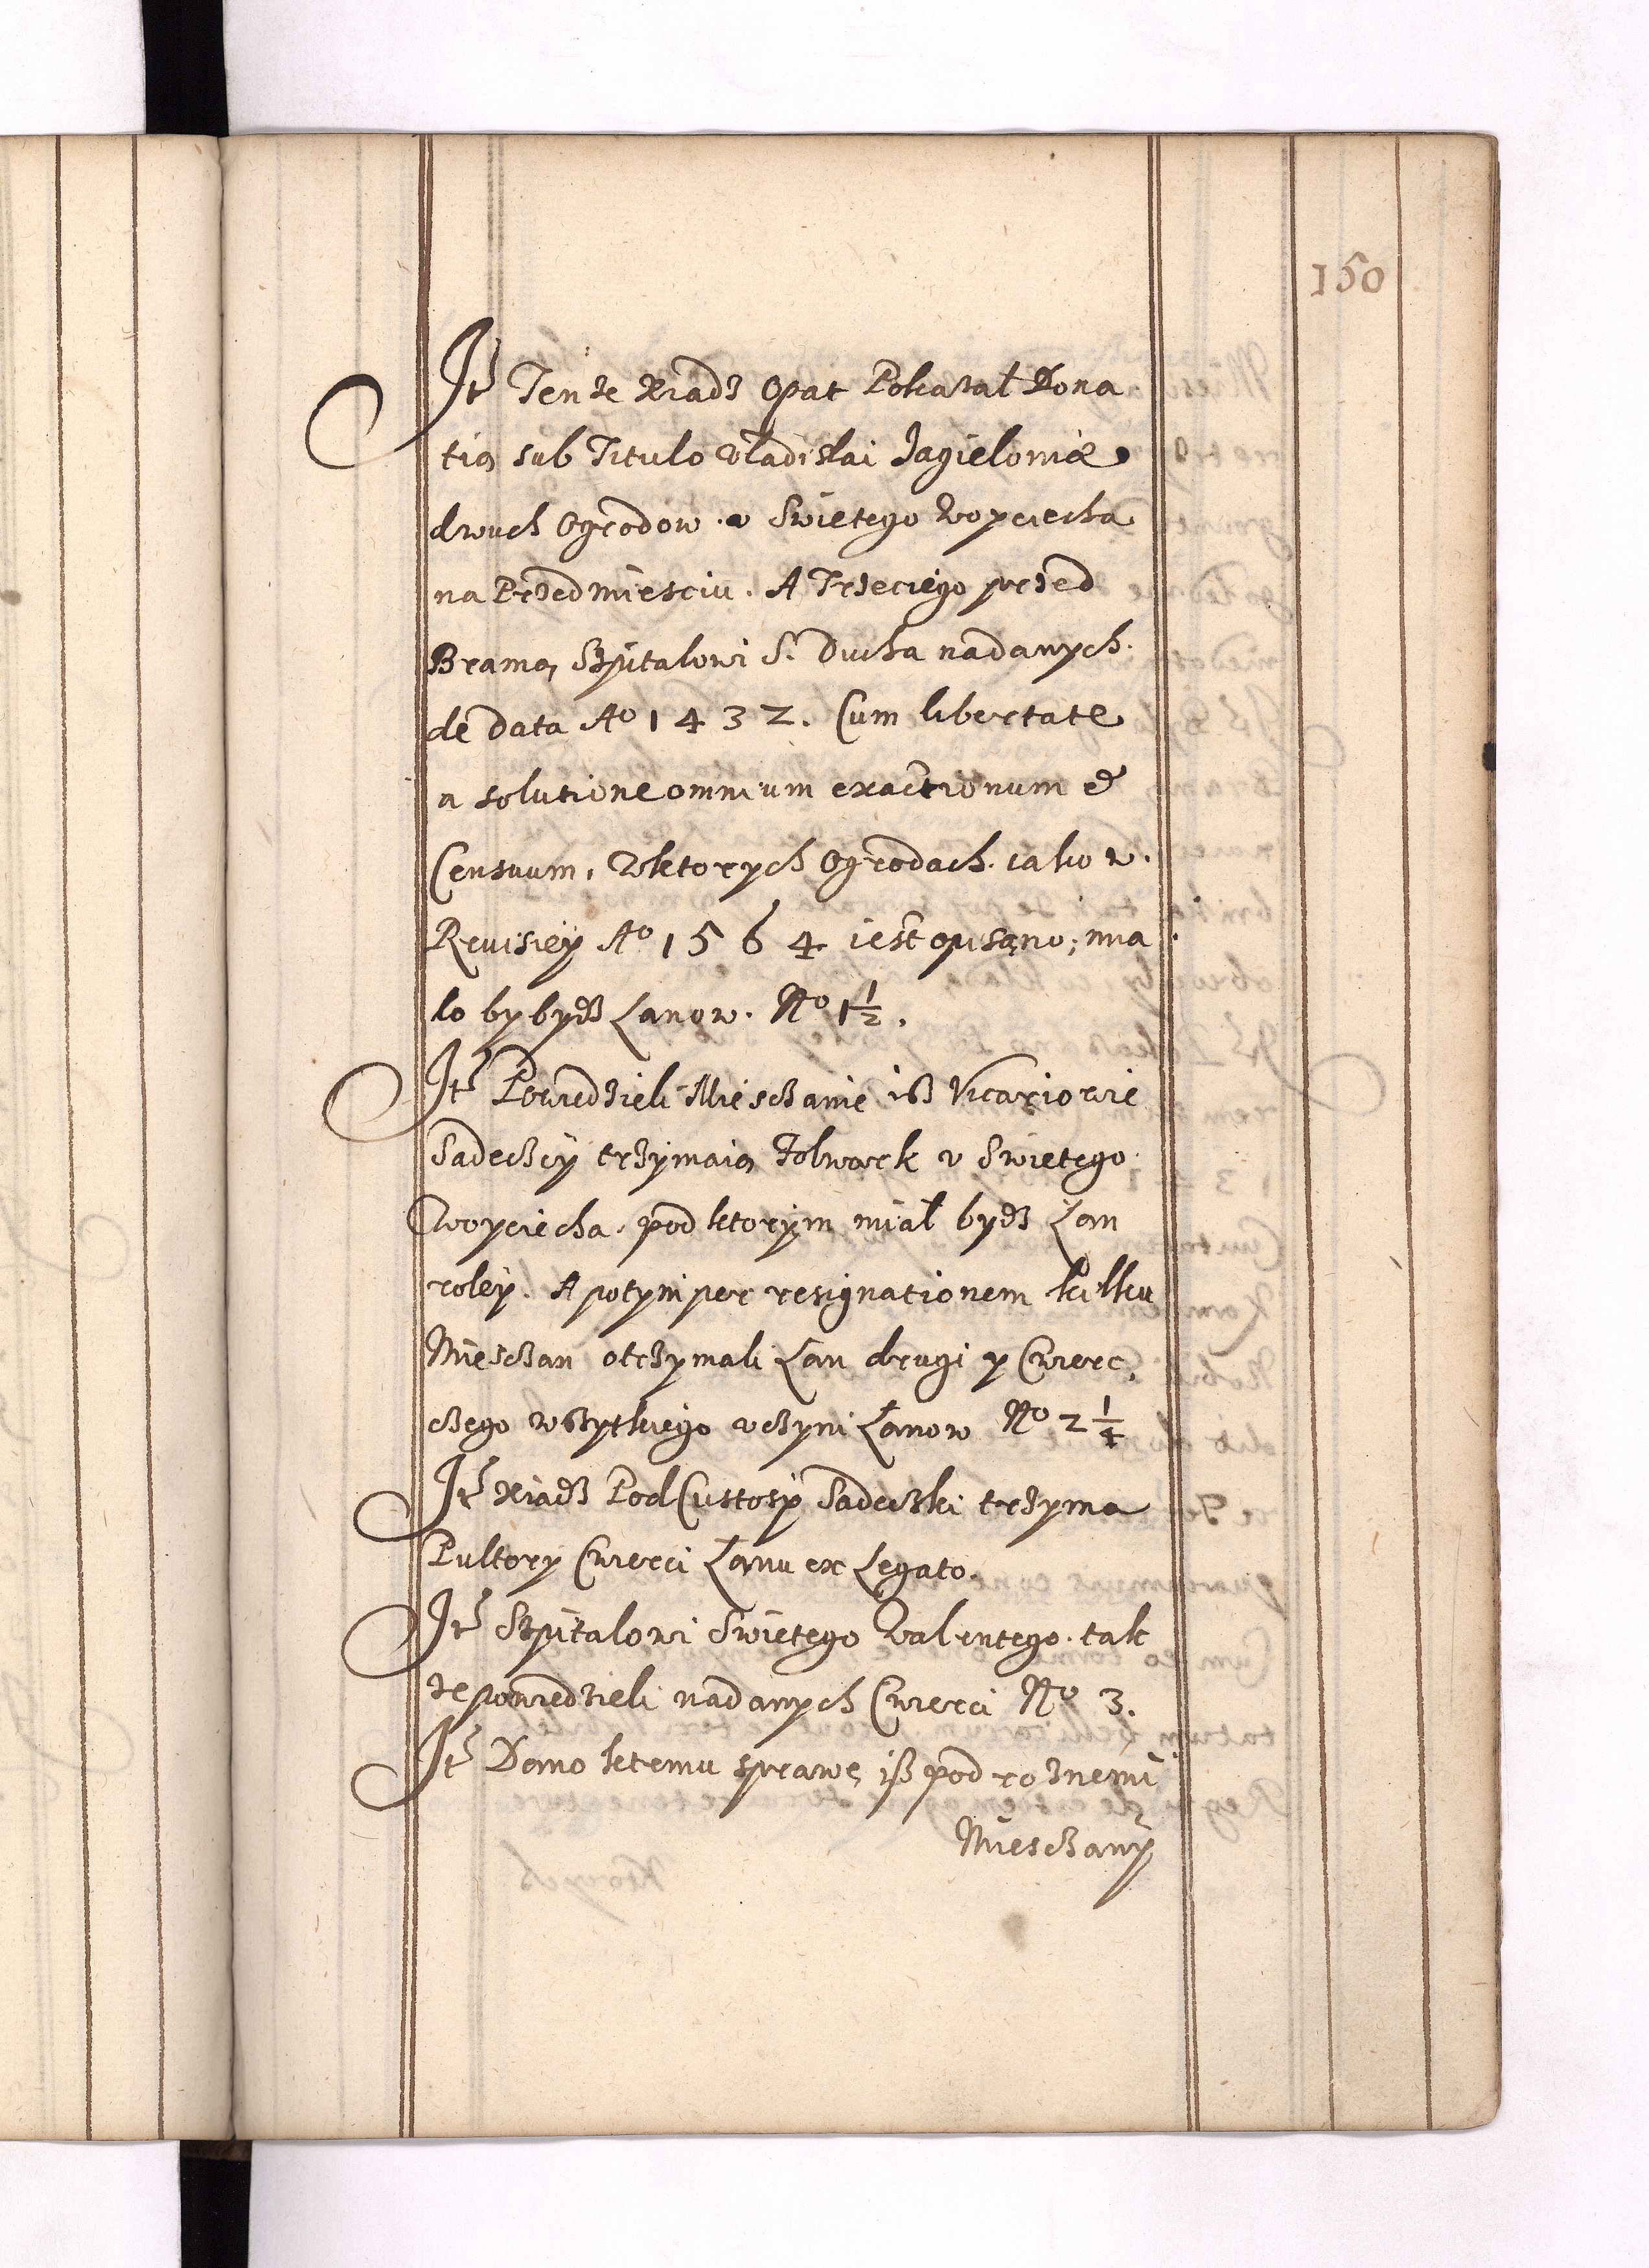 150
It Tenze Xiadz Opat Pokazał Dona
tią sub Titulo Vladislai Jagieloniæ
dwuch Ogrodow v Swietego Woyciecha
na Przedmiesciu. A Trzeciego przed
Bramą Szpitalowi S. Ducha nadanych.
de Data Ao 1432. Cum libertate
a solutione omnium exactionum &
Censuum, wktorych Ogrodach iako w.
Revisiey Ao 1564 iest opisano; mia
lo by bydz Łanow. No 1 1/2.
It Powiedzieli Miesczanie isz Vicariowie
Sadeczcy trzymaią Folwark v Swietego
Woyciecha. pod ktorym miał bydz Łan
roley. A potym per resignationem kilku
Miesczan otrzymali Łan drugi y Cwierc,
czego wszytkiego vczyni Łanow No 2 1/4
It Xiadz PodCustosy Sadeczki trzyma
Pultory Cwierci Łanu ex Legato.
It Szpitalowi Swietego Walentego. tak
ze powiedzieli nadanych Cwierci No 3.
It Dano ktemu sprawę isz pod roznemi
Miesczany